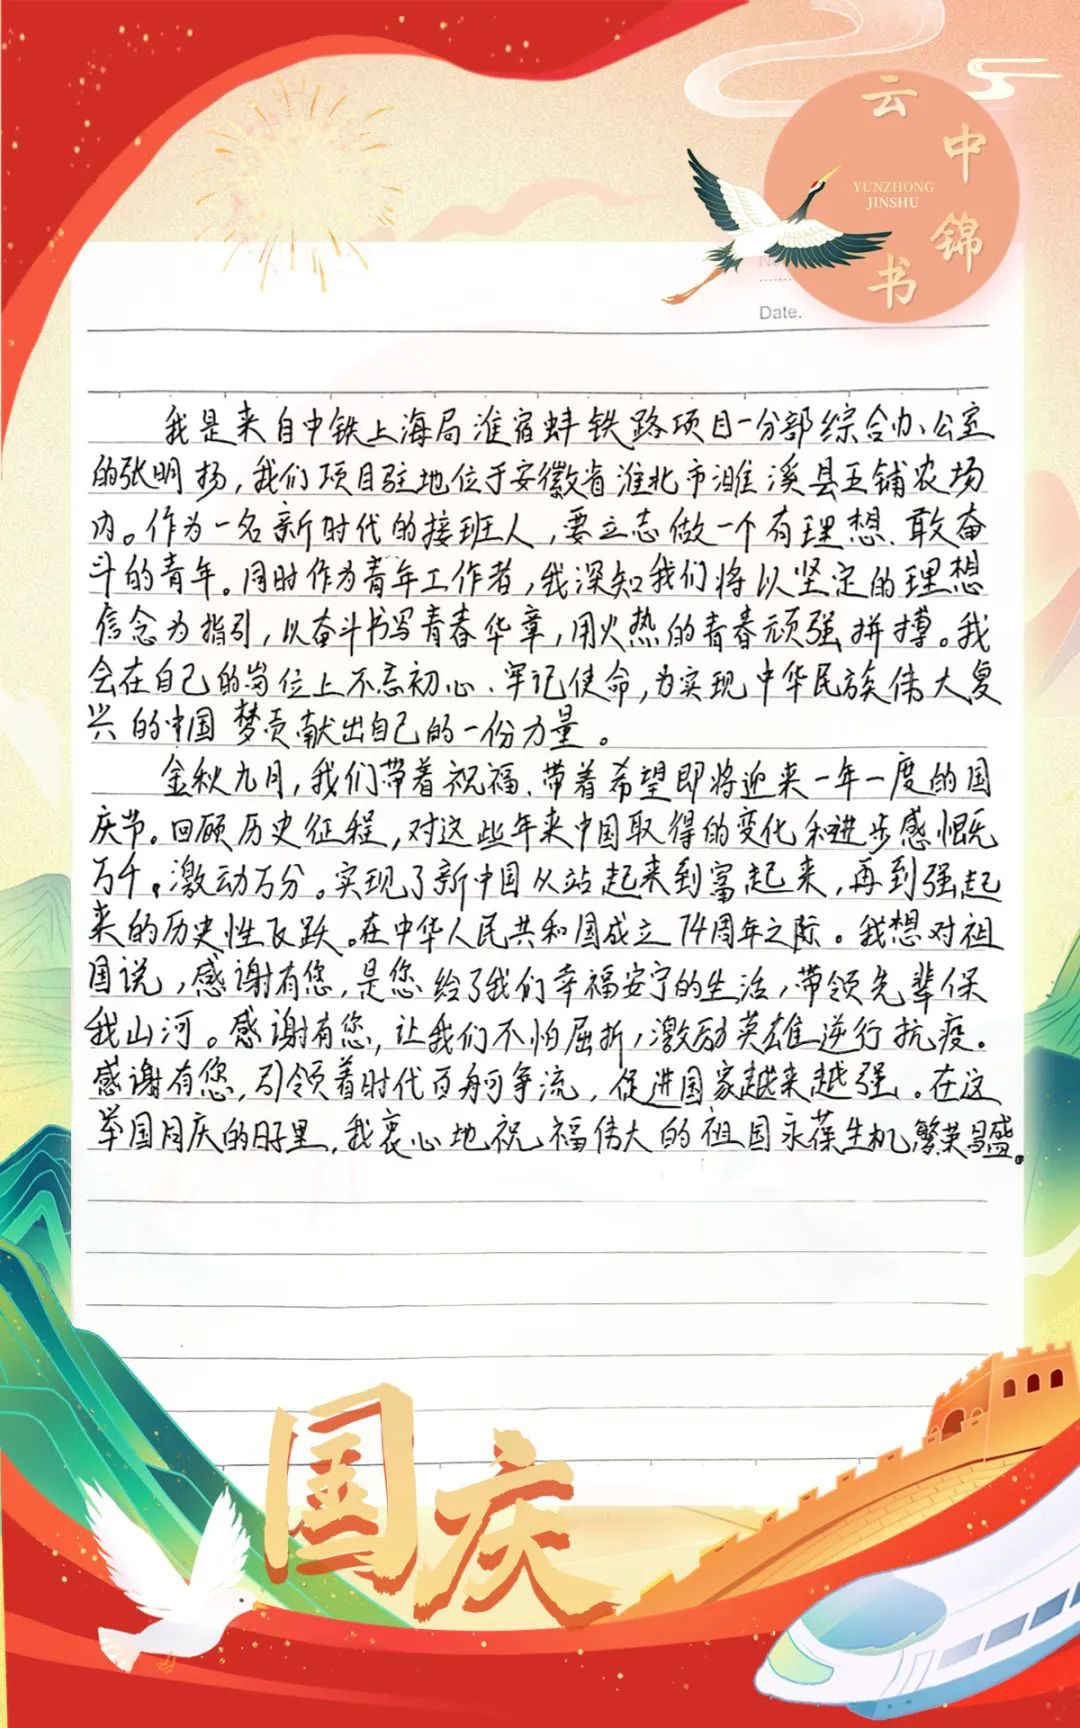 云中锦书
YUNZHONG
JINSHU
No.
Date.
我是来自中铁上海局淮宿蚌铁路项目一分部综合办公室
的张明扬,我们项目驻地位于安徽省淮北市濉溪县五铺农场
内。作为一名新时代的接班人,要立志做一个有理想、敢奋
斗的青年。同时作为青年工作者,我深知我们将以坚定的理想
信念为指引,以奋斗书写青春华章,用火热的青春顽强拼搏。我
会在自己的岗位上不忘初心、牢记使命,为实现中华民族伟大复
兴的中国梦贡献出自己的一份力量。
金秋九月,我们带着祝福、带着希望即将迎来一年一度的国
庆节。回顾历史征程,对这些年来中国取得的变化和进步感慨
万千,激动万分。实现了新中国从站起来到富起来,再到强起
来的历史性飞跃。在中华人民共和国成立74周年之际。我想对祖
国说,感谢有您,是您给了我们幸福安宁的生活,带领先辈保
我山河。感谢有您,让我们不怕屈折,激励英雄逆行抗疫。
感谢有您,引领着时代百舸争流,促进国家越来越强。在这
举国同庆的日子里,我衷心地祝福伟大的祖国永葆生机繁荣昌盛。
国庆